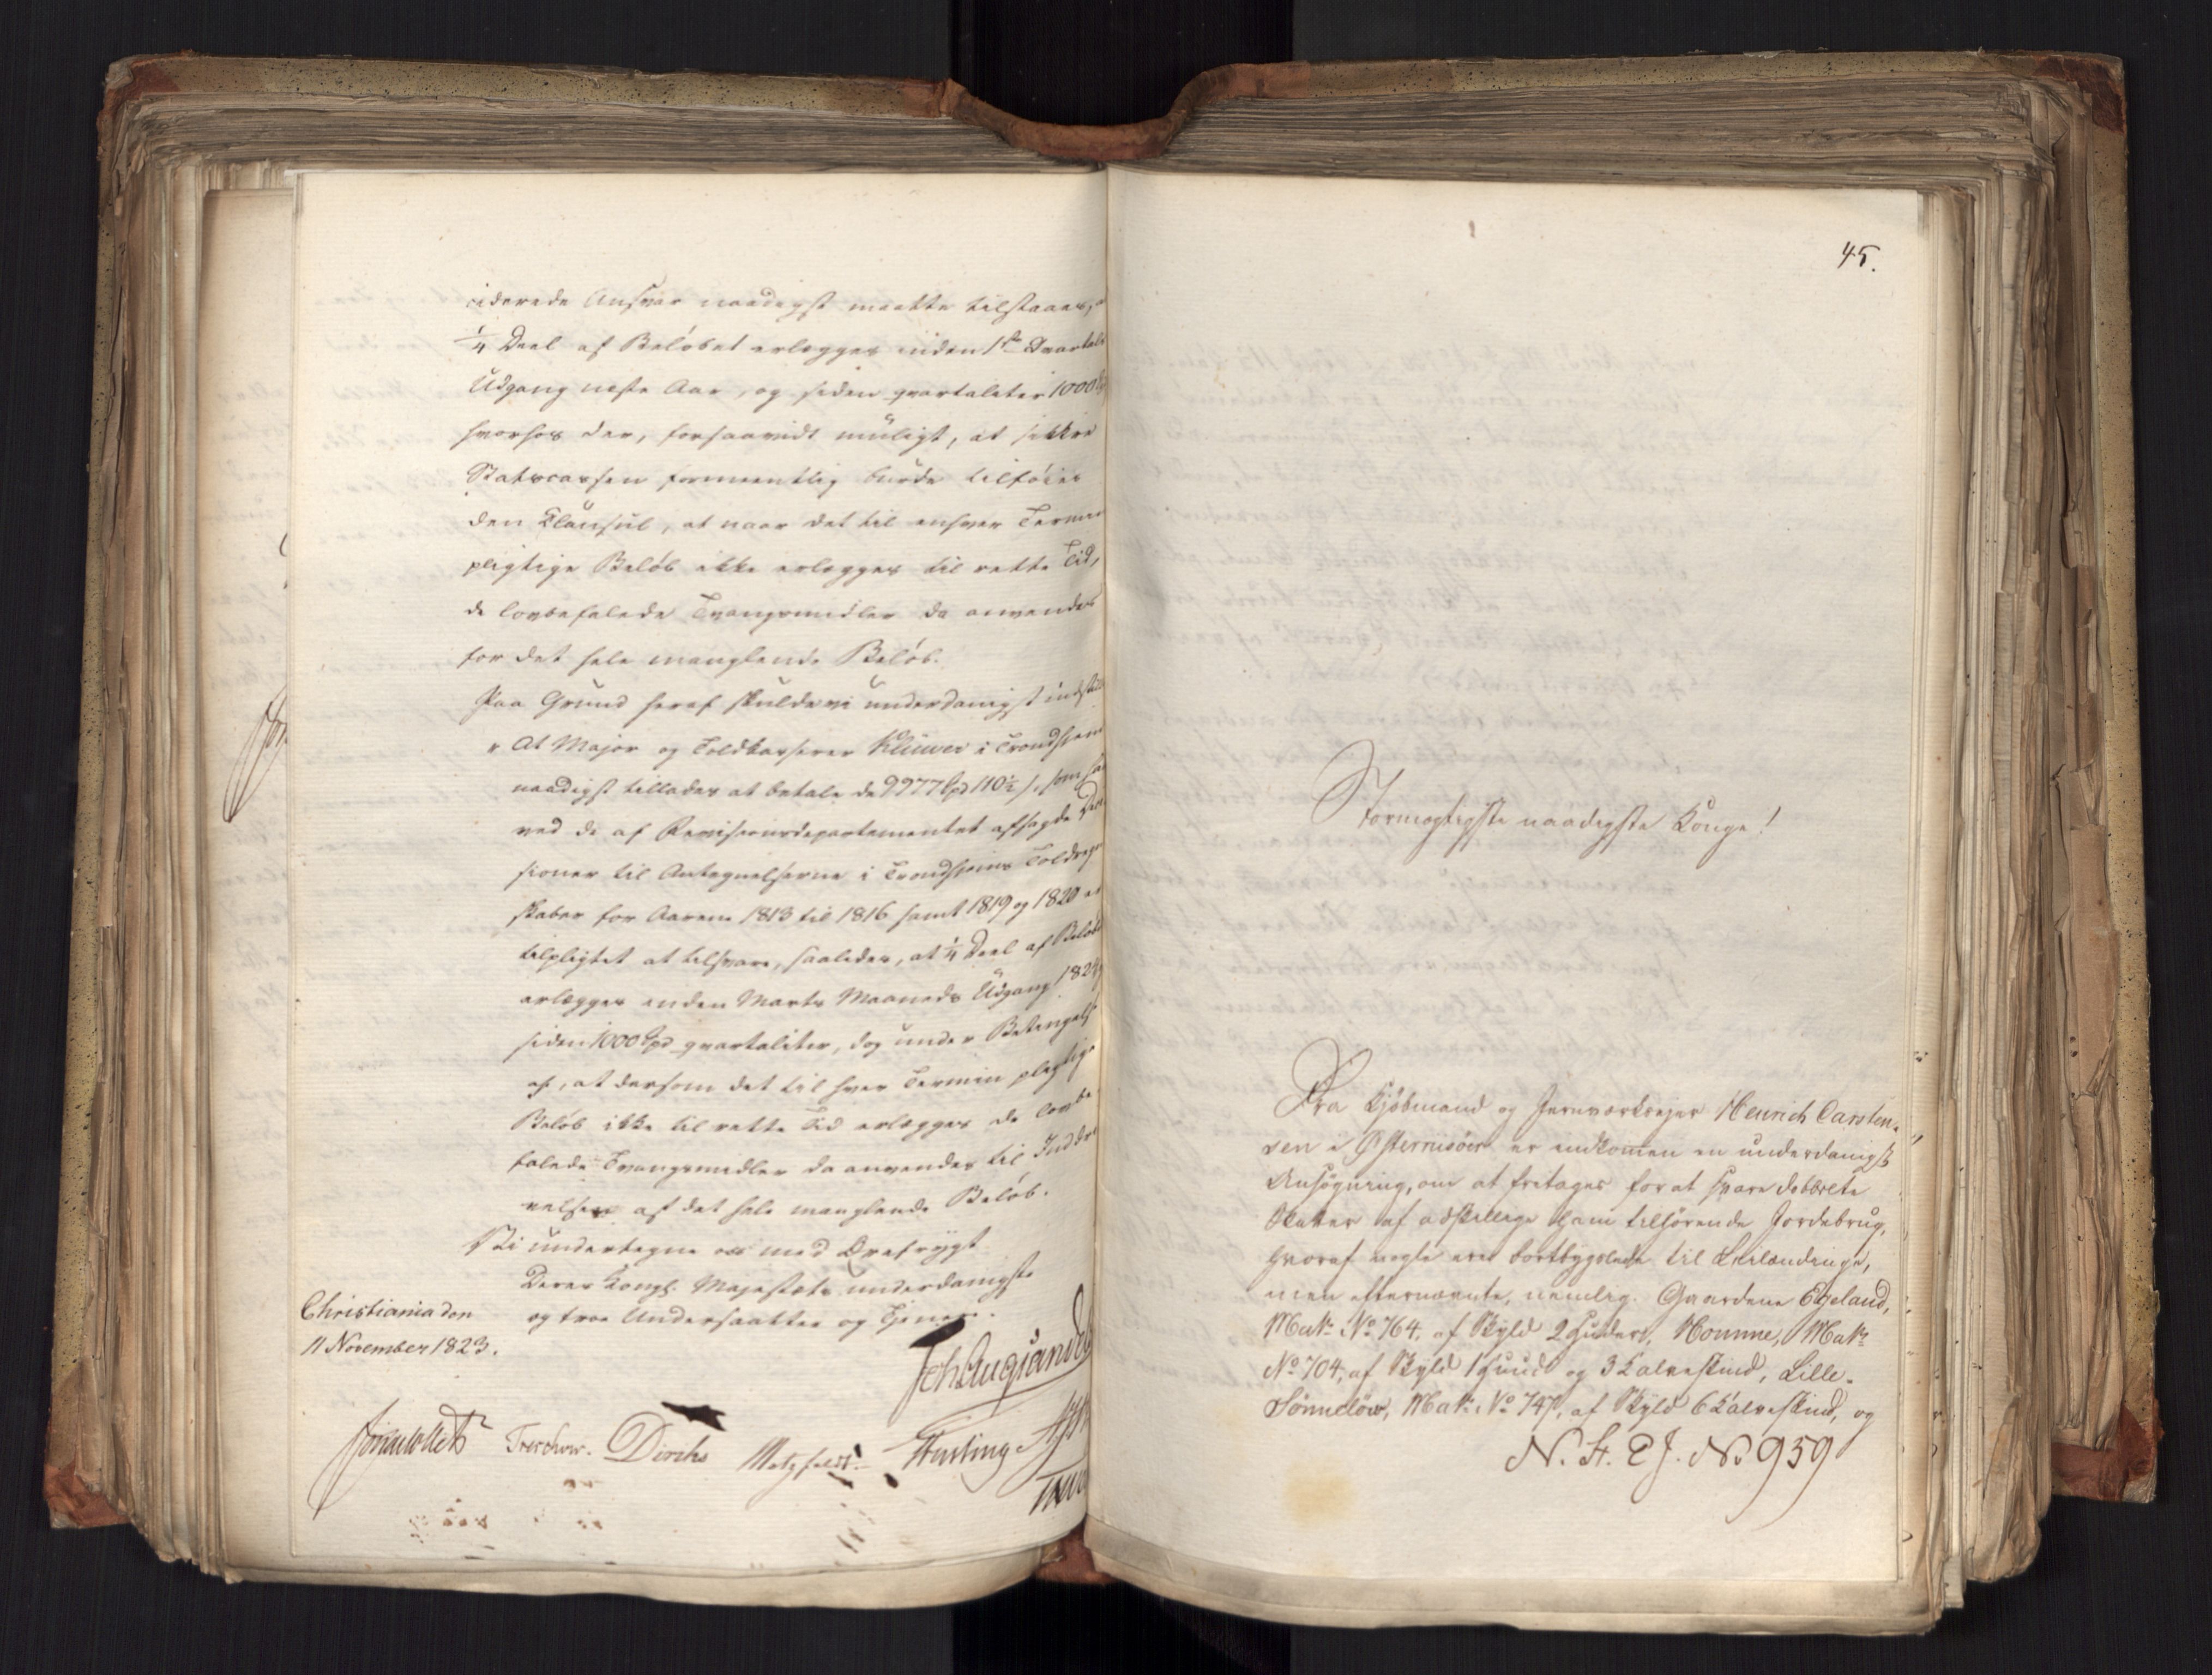 ciderede Ansvar naadigst maatte tilstaaes,
¼ Deel af Beløbet erlægges inden 1ste Qvartals
Udgang næste Aar, og siden qvartaliter 1000
hvorhos der, forsaavidt muligt, at sikkre
Statscassen formeentlig burde tilføies
den Clausul, at naar det til enhver Termin
pligtige Beløb ikke erlægges til rette Tid,
de lovbefalede Tvangsmidler da anvendes
for det hele manglende Beløb.
Paa Grund heraf skulde vi underdanigst indstille
"At Major og Toldkasserer Klüwer i Trondhjem
naadigst tillades at betale de 9977 Spd 110½ s, som han
ved de af Revisionsdepartementet afsagde Deci
sioner til Antegnelserne i Trondhjems Toldregn
skaber for Aarene 1813 til 1816 samt 1819 og 1820 er
tilpligtet at tilsvare, saaledes, at ¼ Deel af Beløbet
erlægges inden Marts Maaneds Udgang 1824,
siden 1000 Spd qvartaliter, dog under Betingelse
af, at dersom det til hver Termin pligtige
Beløb ikke til rette Tid erlægges de lovbe
falede Tvangsmidler da anvendes til Inddri
velsen af det hele manglende Beløb.
Vi undertegne os med Ærefrygt
Deres Kongl. Majestæts underdanigste
og troe Undersaatter og Tjenere.
Christiania den
11 November 1823.
Treschow. Diriks Motzfeldt.
45.
Stormægtigste naadigste Konge!
Fra Kjøbmand og Jernværkseier Henrich Carsten-
sen i Østerrisøer er indkommen en underdanigst
Ansøgning, om at fritages for at svare dobbelte
Skatter af adskillige ham tilhørende Jordebrug,
hvoraf nogle ere bortbygslede til Leilændinge,
men efternævnte, nemlig. Gaardene Egeland,
Matr No 764, af Skyld 2 Huder, Homme, Matr
No 704, af Skyld 1 Huud og 3 Kalveskind, Lille-
Sønneløw, Matr No 747, af Skyld 6 Kalveskind, og
N. St. E J. No 959